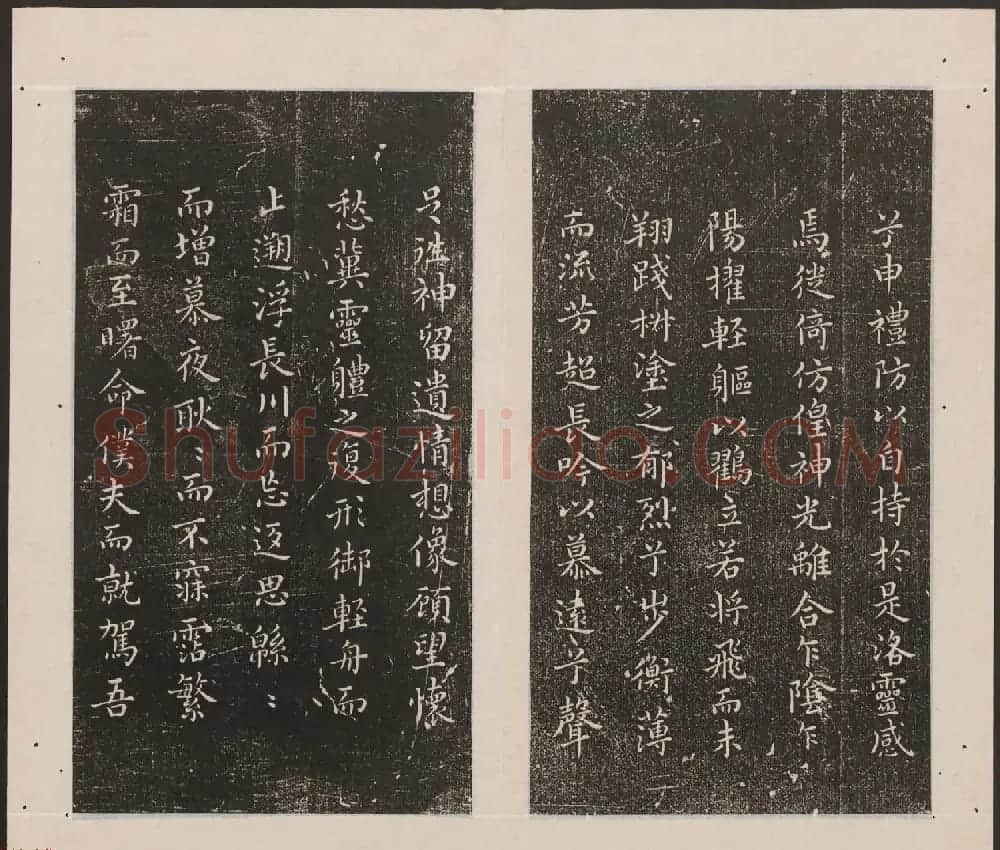 兮申禮防以自持於是洛靈感
焉徙倚仿偟神光離合乍陰乍
陽擢輕軀以鶴立若將飛而未
翔踐椒塗之郁烈兮步衡薄
而流芳超長吟以慕遠兮聲
足往神留遺情想像顧望懷
愁冀靈軆之復形御輕舟而
上遡浮長川而忘返思緜〻
而增慕夜耿〻而不寐霑繁
霜而至曙命僕夫而就駕吾
Shufaziliao.COM